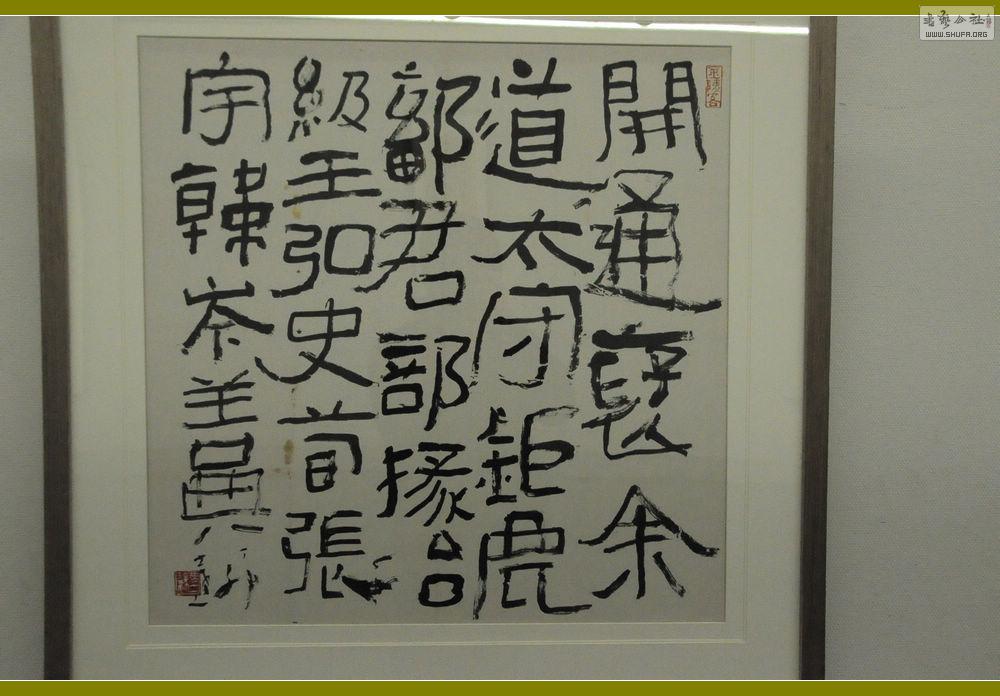 開通褒余
道太守鉅鹿
鄐君部掾治
級王弘史荀張
宇韓岑等興
书艺公社
WWW.SHUFA.ORG